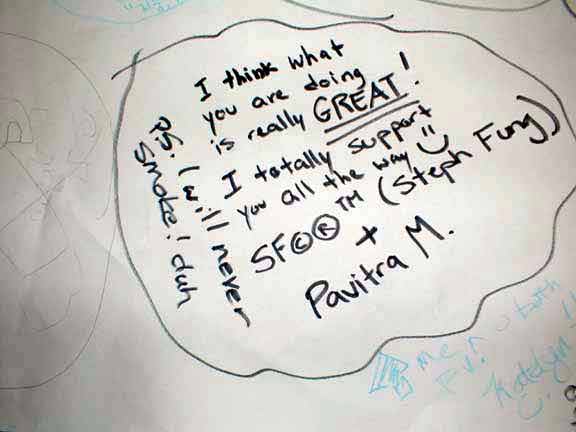 I think what
you are doing
is really GREAT!
I totally support
you all the way
SF©® ™ (Steph Fung)
+
Pavitra M.
P.S. I will never
smoke! duh
me
both
Katelyn